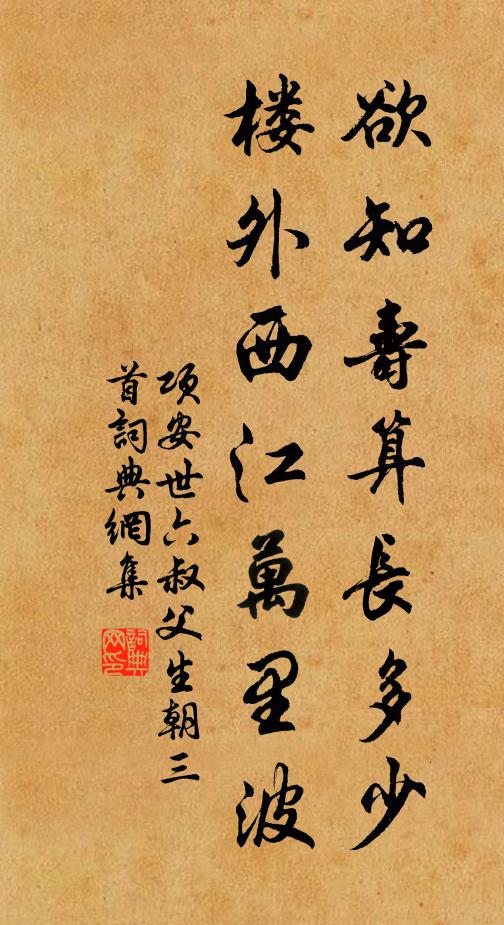 欲知壽算長多少
楼外西江萬里波
项安世六叔父生朝三
首詞典網集
詞典网印